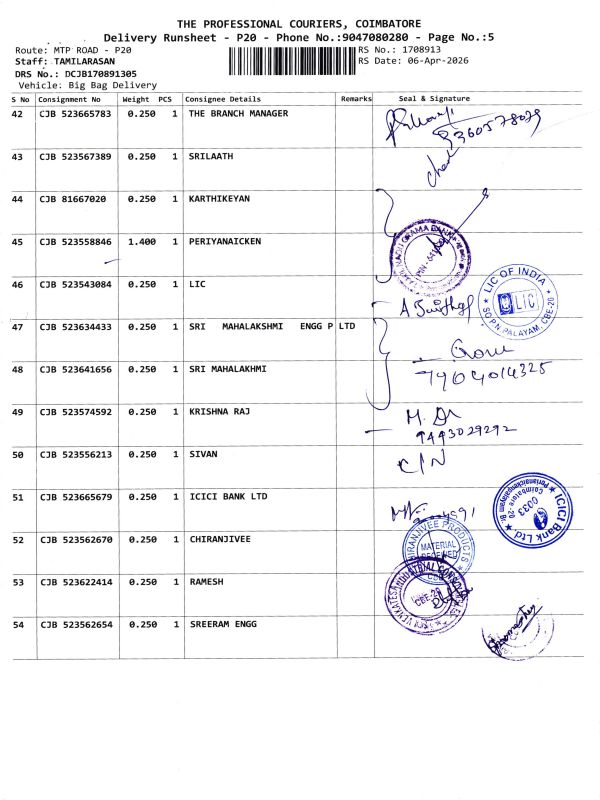 THE PROFESSIONAL COURIERS, COIMBATORE
Delivery Runsheet - P20 - Phone No.:9047080280 - Page No.:5
Route: MTP ROAD - P20
RS No.: 1708913
Staff: TAMILARASAN
RS Date: 06-Apr-2026
DRS No.: DCJB170891305
Vehicle: Big Bag Delivery
S No Consignment No Weight PCS Consignee Details Remarks Seal & Signature
42 CJB 523665783 0.250 1 THE BRANCH MANAGER
9360578079
43 CJB 523567389 0.250 1 SRILAATH
44 CJB 81667020 0.250 1 KARTHIKEYAN
45 CJB 523558846 1.400 1 PERIYANAICKEN
46 CJB 523543084 0.250 1 LIC
LIC OF INDIA
LIC
SO P.N. PALAYAM, CBE-20
47 CJB 523634433 0.250 1 SRI MAHALAKSHMI ENGG P LTD
48 CJB 523641656 0.250 1 SRI MAHALAKHMI
7904014325
49 CJB 523574592 0.250 1 KRISHNA RAJ
9443029292
50 CJB 523556213 0.250 1 SIVAN
C/N
51 CJB 523665679 0.250 1 ICICI BANK LTD
ICICI Bank Ltd.
0033
Coimbatore -20
52 CJB 523562670 0.250 1 CHIRANJIVEE
CHIRANJIVEE PRODUCTS
MATERIAL
RECEIVED
53 CJB 523622414 0.250 1 RAMESH
CBE-29
54 CJB 523562654 0.250 1 SREERAM ENGG